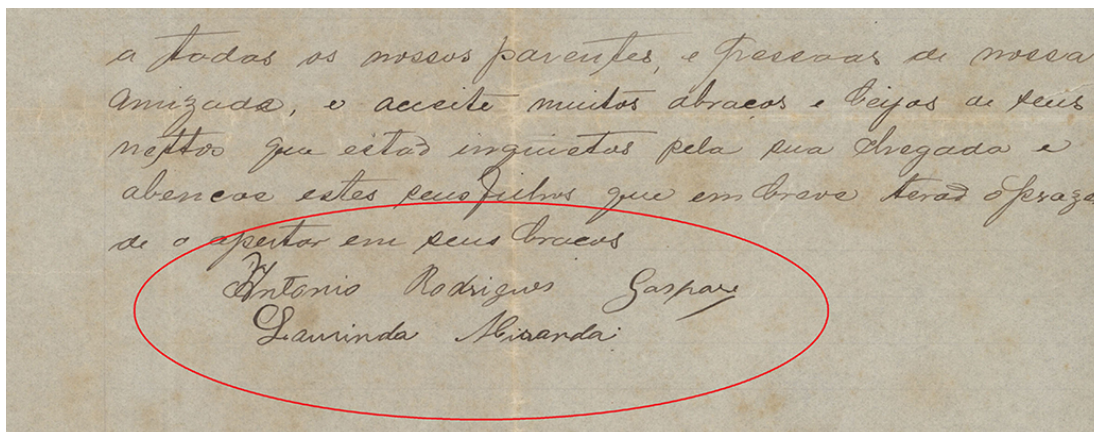 a todas os nossos parentes, e pessoas de nossa
amizada, e aceite muitos abracos e beijos de seus
nettos que estaõ inquietos pela sua chegada e
abencoe estes seus filhos que em breve teraõ o praze
de o apertar em seus bracos
Antonio Rodrigues Gaspar
Laurinda Miranda